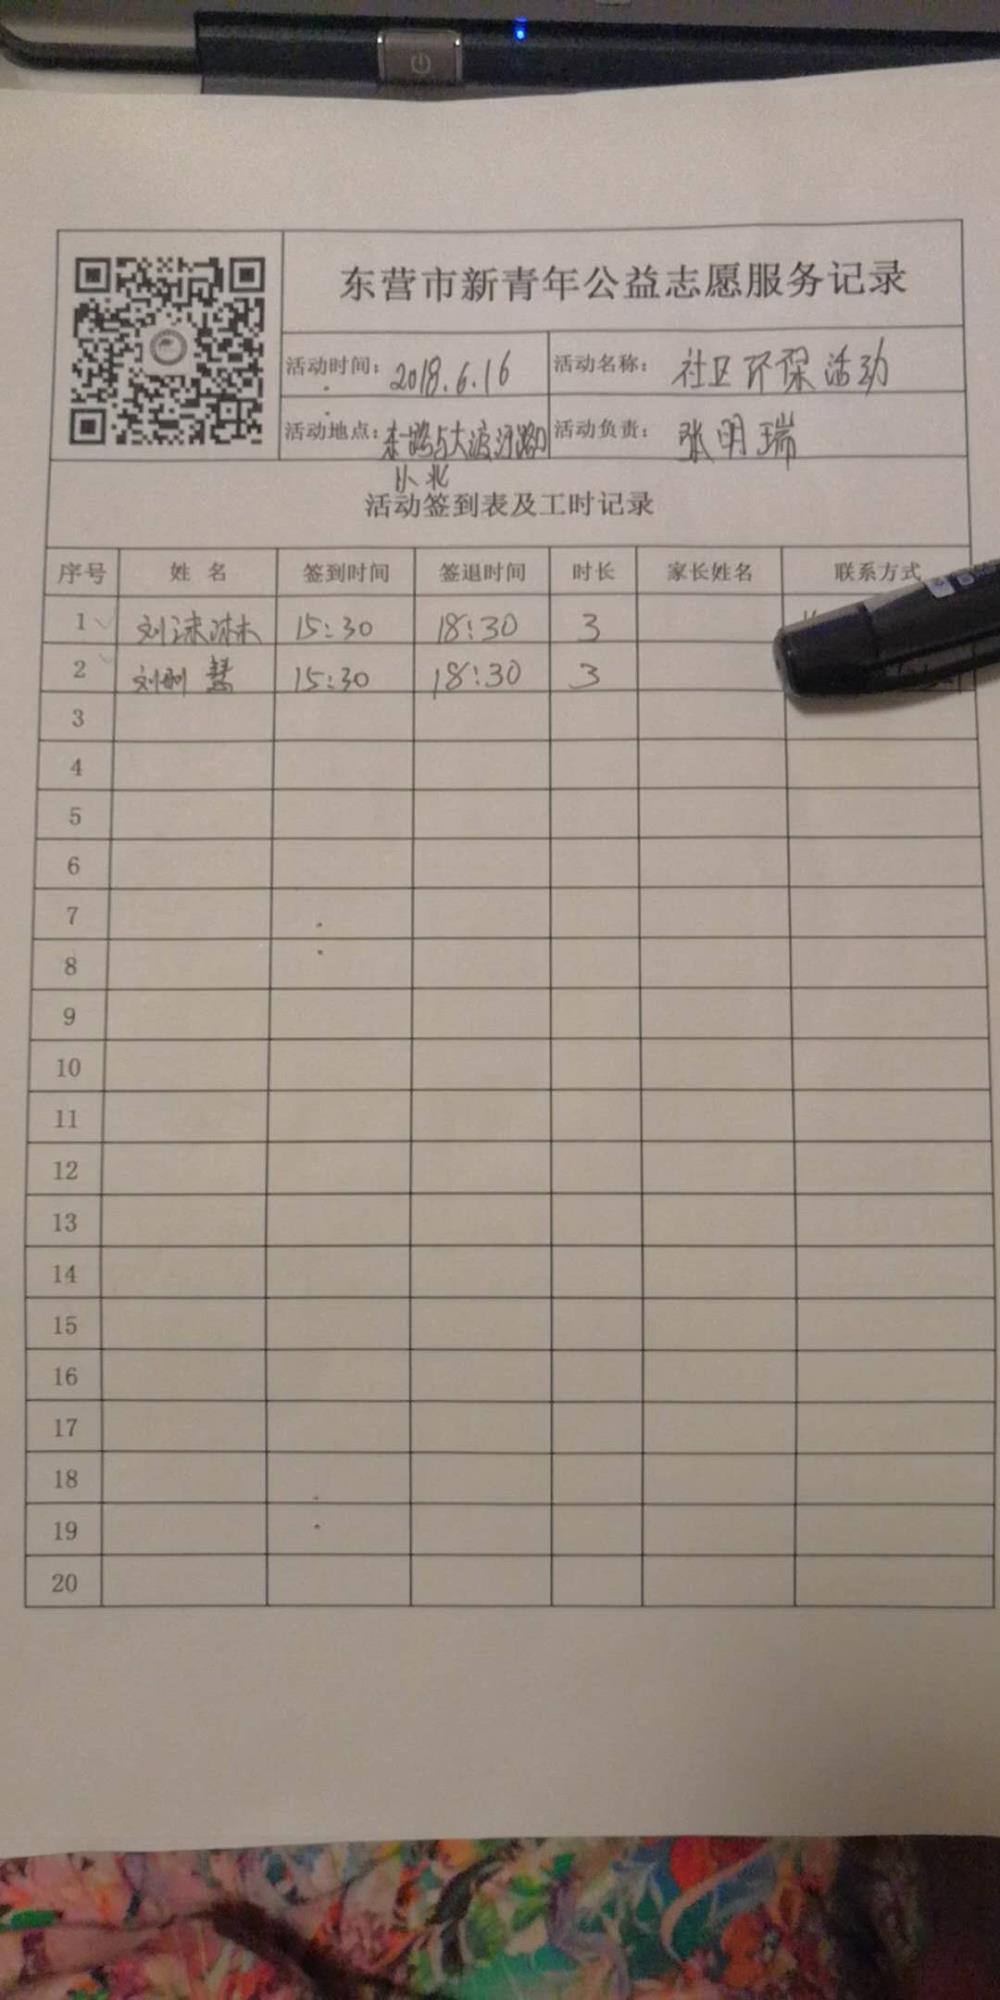 东营市新青年公益志愿服务记录
活动时间： 2018.6.16 活动名称： 社区环保活动
活动地点： 东一路与大渡河路口 活动负责： 张明瑞
以北
活动签到表及工时记录
序号 姓 名 签到时间 签退时间 时长 家长姓名 联系方式
1 刘 15:30 18:30 3
2 刘 慧 15:30 18:30 3
3
4
5
6
7
8
9
10
11
12
13
14
15
16
17
18
19
20